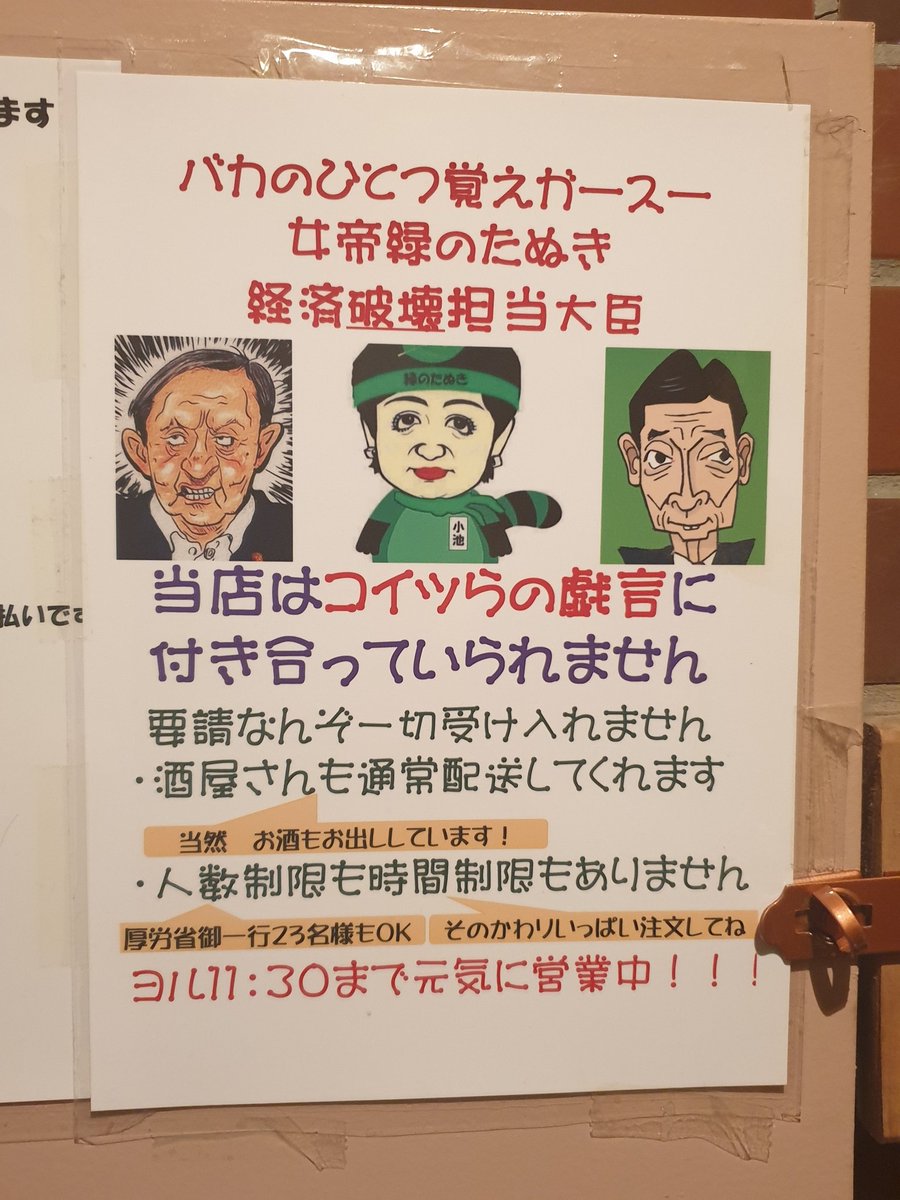 ます
払いです
バカのひとつ覚えガースー
女帝緑のたぬき
経済破壊担当大臣
緑のたぬき
小池
当店はコイツらの戯言に
付き合っていられません
要請なんぞ一切受け入れません
・酒屋さんも通常配送してくれます
当然　お酒もお出ししています！
・人数制限も時間制限もありません
厚労省御一行23名様もOK
そのかわりいっぱい注文してね
ヨル11:30まで元気に営業中！！！